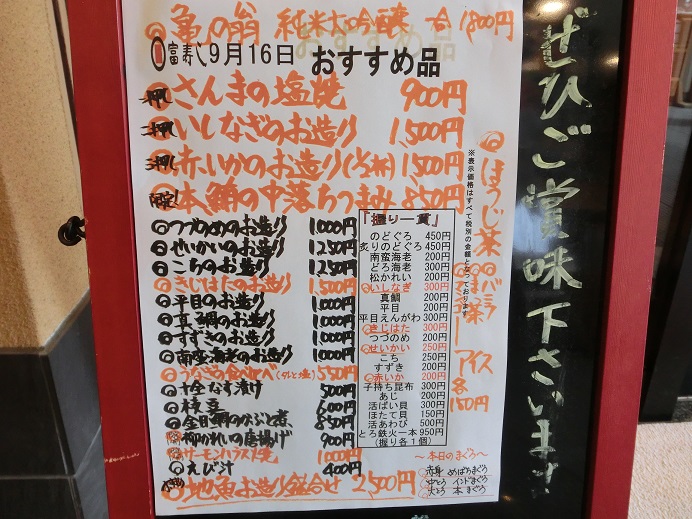 亀の翁 純米大吟醸 一合1800円
富寿し 9月16日 おすすめ品
一押し さんまの塩焼 900円
二押し いしなぎのお造り 1,500円
三押し 赤いかのお造り(1/2杯) 1,500円
限定! 本鮪の中落ちつまみ 850円
つづのめのお造り 1000円
せいかいのお造り 1250円
こちのお造り 1250円
きじはたのお造り 1,500円
平目のお造り 1000円
真鯛のお造り 1000円
すずきのお造り 1000円
南蛮海老のお造り 1000円
うなぎの食べ比べ(タレと塩) 550円
十全なす漬け 500円
枝豆 600円
金目鯛のかぶと煮 850円
柳かれいの唐揚げ 900円
サーモンハラス1焼 1000円
えび汁 400円
地魚お造り盛合せ 2,500円
『握り一貫』
のどぐろ 450円
炙りのどぐろ 450円
南蛮海老 200円
どろ海老 300円
松かれい 200円
いしなぎ 300円
真鯛 200円
平目 200円
平目えんがわ 300円
きじはた 300円
つづのめ 200円
せいかい 250円
こち 250円
すずき 200円
赤いか 200円
子持ち昆布 300円
あじ 200円
活ばい貝 200円
ほたて貝 150円
活あわび 500円
とろ鉄火一本 950円
(握り各1個)
～本日のまぐろ～
赤身 めばちまぐろ
中とろ インドまぐろ
大とろ 本まぐろ
※表示価格はすべて税別の金額となっております
ほうじ茶
バニラ
アイス
各150円
ぜひご賞味下さいませ